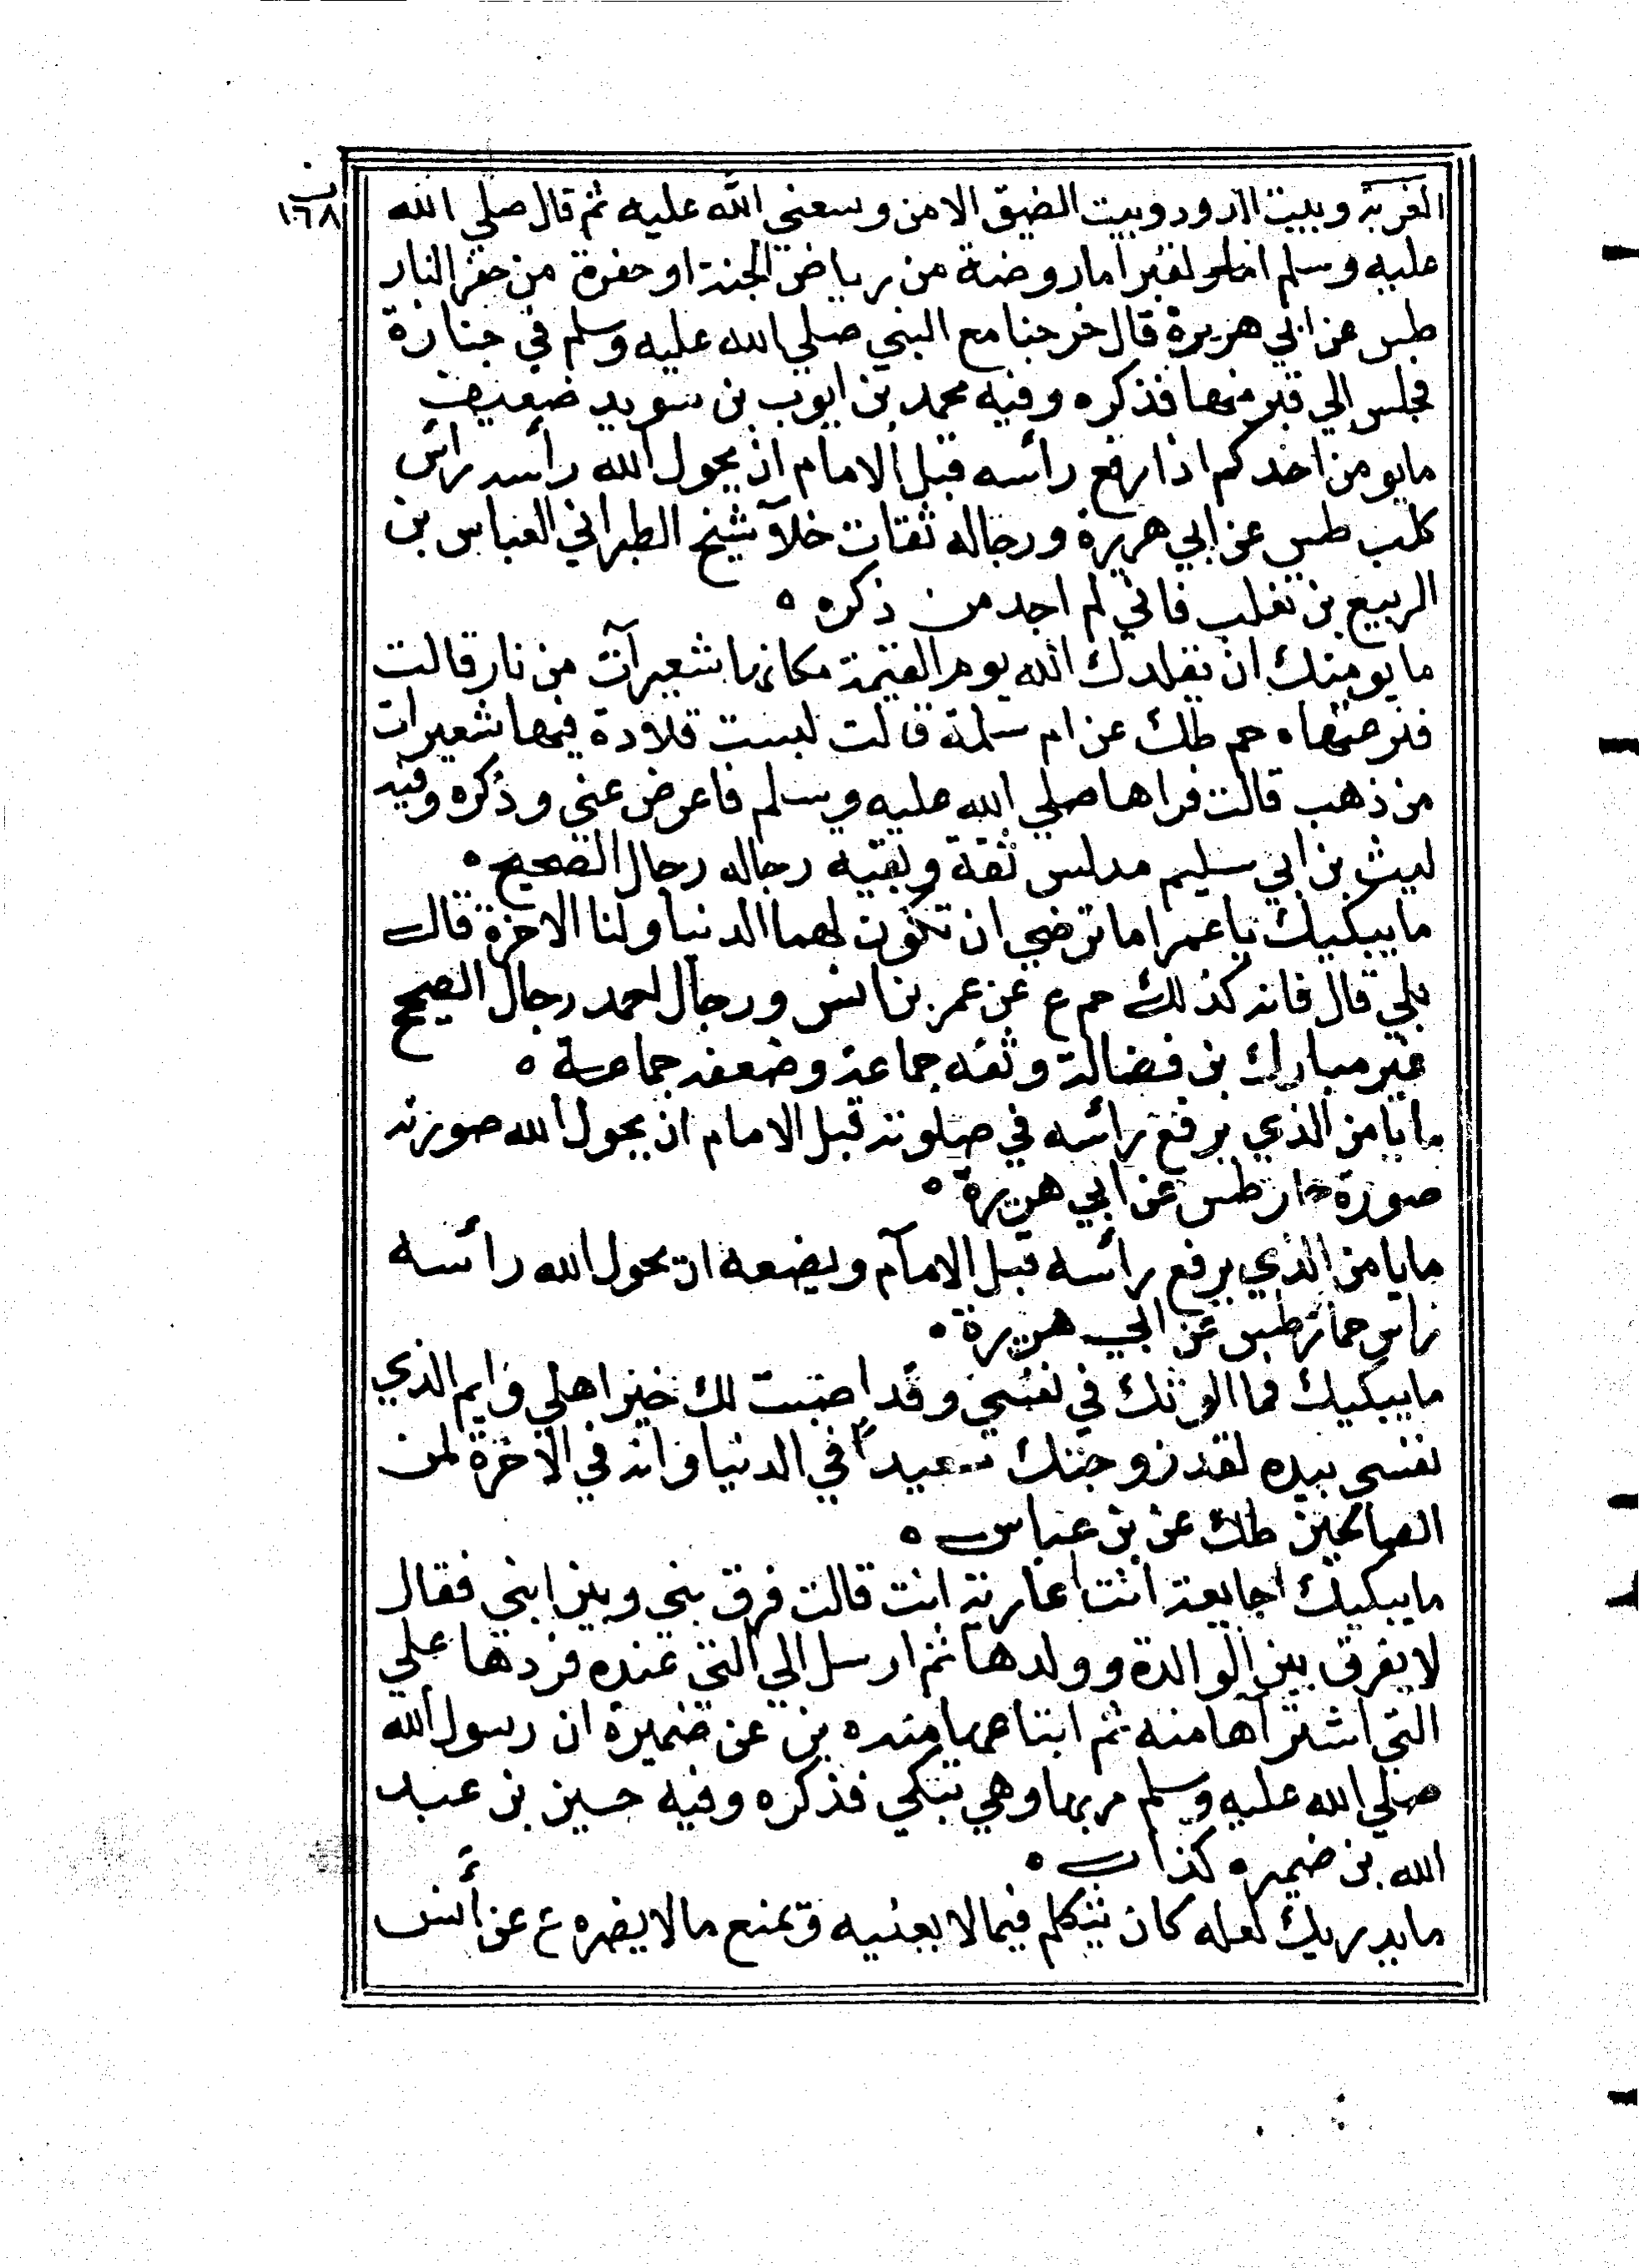 ب
١٦٨
الغربة وبيت الدود وبيت الضيق الا من وسعني الله عليه ثم قال صلي الله
عليه وسلم القبر اما روضة من رياض الجنة او حفرة من حفر النار
طس عن ابي هريرة قال خرجنا مع النبي صلي الله عليه وسلم في جنازة
فجلس الي قبر منها فذكره وفيه محمد بن ايوب بن سويد ضعيف
مايومن احدكم اذا رفع رأسه قبل الامام ان يحول الله رأسه رأس
كلب طس عن ابي هريرة ورجاله ثقات خلا شيخ الطبراني العباس بن
الربيع بن تغلب فاني لم اجد من ذكره ه
ما يومنك ان يقلدك الله يوم القيمة مكانها شعيرات من نار قالت
فنزعتها ه حم طك عن ام سلمة قالت لبست قلادة فيها شعيرات
من ذهب قالت فراها صلي الله عليه وسلم فاعرض عني وذكره وفيه
ليث بن ابي سليم مدلس ثقة وبقية رجاله رجال الصحيح ه
ما يبكيك يا عمر اما ترضي ان تكون لهما الدنيا ولنا الاخرة قال
بلي قال فانه كذلك حم ع عن عمر بن انس ورجال احمد رجال الصحيح
غير مبارك بن فضالة وثقه جماعة وضعفه جماعة ه
ما يامن الذي يرفع رأسه في صلوته قبل الامام ان يحول الله صورته
صورة حمار طس عن ابي هريرة ه
ما يامن الذي يرفع رأسه قبل الامام ويضعه ان يحول الله رأسه
راس حمار طس عن ابي هريرة ه
ما يبكيك فما الوتك في نفسي وقد اصبت لك خير اهلي وايم الذي
نفسي بيده لقد زوجتك سعيداً في الدنيا وانه في الاخرة لمن
الصالحين طك عن بن عباس ه
ما يبكيك اجايعة انت اعارية انت قالت فرق بني وبين ابني فقال
لا يفرق بين الوالدة وولدها ثم ارسل الي التي عنده فردها علي
التي اشتراها منه ثم ابتاعها منه بز عن ضميرة ان رسول الله
صلي الله عليه وسلم مر بها وهي تبكي فذكره وفيه حسين بن عبد
الله بن ضميره كذاب ه
ما يدريك لعله كان يتكلم فيما لا يعنيه ويمنع ما لا يضره ع عن أنس